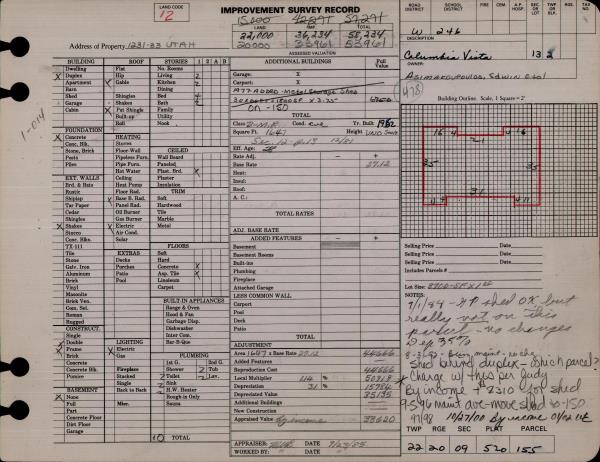 LAND CODE
12
IMPROVEMENT SURVEY RECORD
LAND IMP. TOTAL
22,000 36,234 58,234
20000 33961 53961
ASSESSED VALUATION
Address of Property 1231-33 UTAH
ROAD DISTRICT
SCHOOL DISTRICT
FIRE
CEM.
A.P. HOSP.
SEC OR LOT
RGE.
TAX NO.
W 246
Columbia Vista 13 2
OWNER:
Asimakopoulos, Edwin
(478)
Building Outline. Scale, 1 Square = 2'
16 4 4 16
21
35 35
31
11 4 4 11
1-014
BUILDING
Dwelling
X Duplex
Apartment
Barn
Shed
Garage
Cabin
FOUNDATION
X Concrete
Conc. Blk.
Stone, Brick
Posts
Piles
EXT. WALLS
Brd. & Bats
Rustic
Shiplap
Tar Paper
Cedar
Shingles
X Shakes
Stucco
Conc. Blks.
TX-111
Tile
Stone
Galv. Iron
Aluminum
Brick
Vinyl
Masonite
Brick Ven.
Com. Sel.
Roman
Rugged
CONSTRUCT.
Single
Double
X Frame
Brick
Concrete
Pumice
BASEMENT
X None
Full
Part
Concrete Floor
Dirt Floor
Garage
ROOF
Flat
Hip
X Gable
Shingles
Shakes
X Pat Shingle
Built-up
Roll
HEATING
Stove
Floor-Wall
Pipeless Furn.
Pipe Furn.
Hot Water
Ceiling
Heat Pump
Floor Rad.
X Base B. Rad.
Panel Rad.
Oil Burner
Gas Burner
X Electric
Air Cond.
Solar
EXTRAS
Decks
Porches
Patio
Pool
LIGHTING
X Electric
Gas
Fireplace
Stacked
Single
Back to Back
Misc.
STORIES 1 2 A B
No. Rooms
Living 2
Kitchen 2
Dining
Bed 4
Bath 2
Family
Utility
Nook
CEILED
Wall Board
Paneled
Plast. Brd. X
Plaster
Insulation
TRIM
Soft
Hardwood
Tile
Marble
Metal
FLOORS
Soft
Hard
Concrete X
Asp. Tile X
Linoleum
Carpet
BUILT-IN APPLIANCES
Range & Oven
Hood & Fan
Garbage Disp.
Dishwasher
Inter Com.
Bar-B-Que
PLUMBING
1st G. 2nd G.
Shower Tub
2 Toilet Lav.
2 Sink
H.W. Heater
Rough-in Only
Sauna
10 TOTAL
ADDITIONAL BUILDINGS
Full Value
Garage: X
Carport: X
1977 ADDED - Metal Storage Shed
on -150
TOTAL
Class D-M.P. Cond. ave Yr. Built 1962
Square Ft. 1647 Height
Eff. Age:
Rate Adj.
Base Rate 27.12
Heat:
Insul:
Roof:
A. C.:
TOTAL RATES
ADJ. BASE RATE
ADDED FEATURES
Basement
Basement Rooms
Built-ins
Plumbing
Fireplace
Attached Garage
LESS COMMON WALL
Carport
Pool
Deck
Patio
TOTAL
ADJUSTMENT
Area 1647 x Base Rate 27.12 44666
Added Features
Reproduction Cost 44666
Local Multiplier 114 % 50918
Depreciation 31 % 15784
Depreciated Value 35135
Additional Buildings
New Construction
Appraised Value By income 33620
APPRAISER: DATE 9/23/85
WORKED BY: DATE
Selling Price Date
Selling Price Date
Selling Price Date
Includes Parcels #
Lot Size:
NOTES:
7/1/89 - shed OK, but
really not on this
parcel - no changes
Dep 35%
shed behind duplex - which parcel?
* Charge w/ this per Judy
By income + 2310 for shed
9-5-96 maint ave - move shed to -150
97/98 10/27/00 By income
TWP RGE SEC PLAT PARCEL
22 20 09 520 155